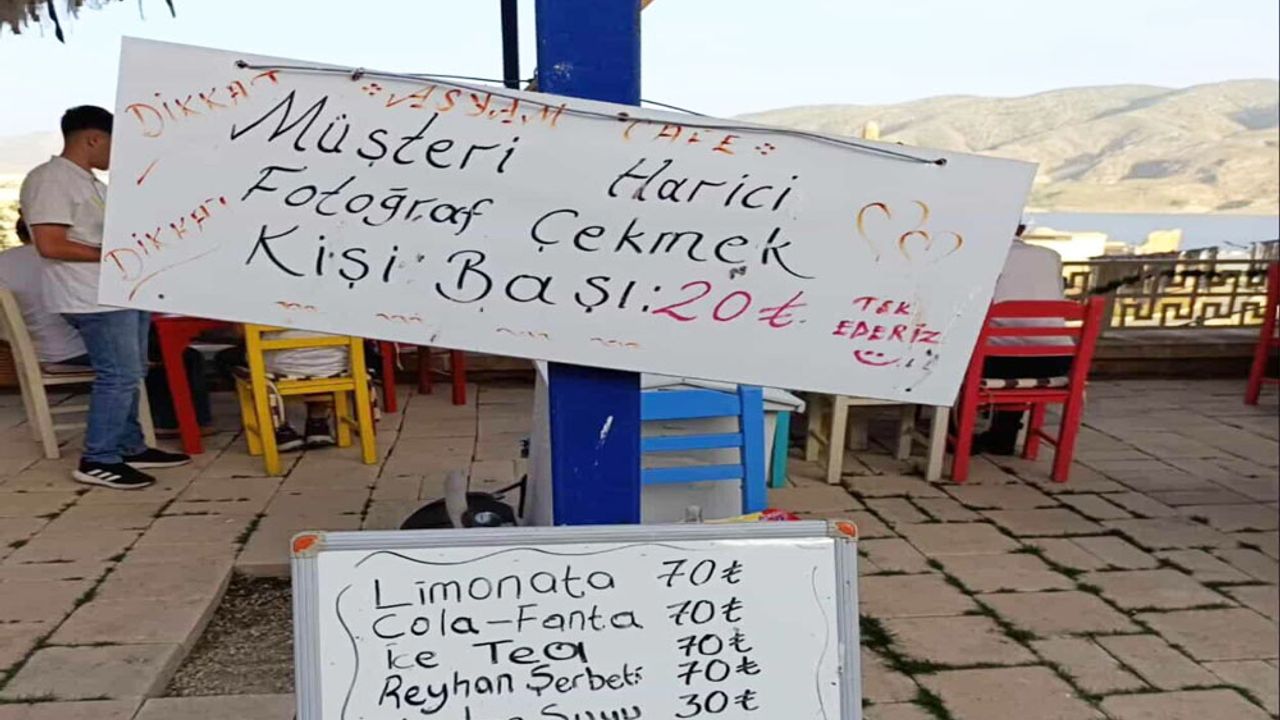 DİKKAT
ASYAM CAFE
Müşteri Harici
Fotoğraf Çekmek
Kişi Başı: 20₺
DİKKAT
TEK EDERİZ
Limonata 70₺
Cola-Fanta 70₺
İce Tea 70₺
Reyhan Şerbeti 70₺
Suyu 30₺